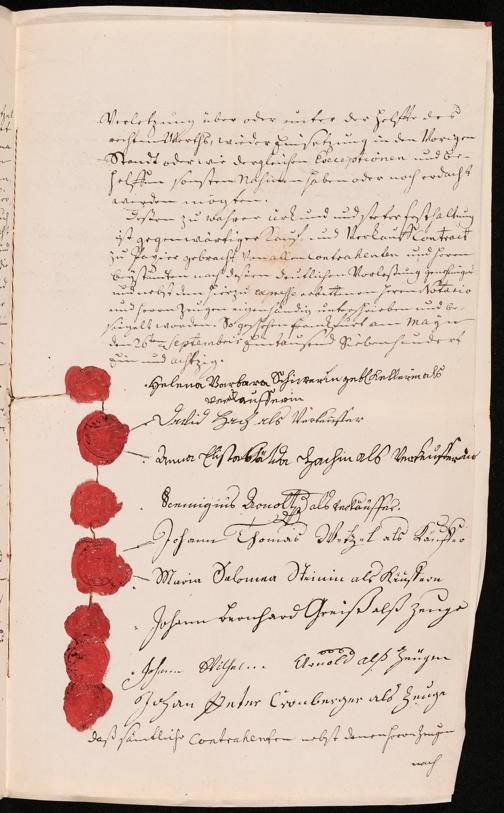 Verletzung über oder unter der Helffte des
rechten Werths, wieder Einsetzung in den Vorigen
Standt oder wie dergleichen Exceptionen und Be-
helffen sonsten Nahmen haben oder noch erdacht
werden mögten.
Dessen zu wahrer Urkund und steter Festhaltung
ist gegenwärtiger Kauf und Verkauff Contract
zu Papier gebracht von allen Contrahenten und Herren
Beyständen nach dessen deutlichen Vorlesung
und nebst dem hierzu expresse erbettenen Herrn Notario
und Herren Zeugen eigenhändig unterschrieben und be-
siegelt worden. So geschehen Franckfurt am Mayn
den 26ten Septembris Eintausend Siebenhundert
Ein und achtzig.
Helena Barbara Schwerin gebl Kellerin als
verkaufferin
David Hach als Verkäuffer
Anna Elisabetha Hachin als Verkeufferin
Remigius Arnoltz als verkäuffer.
Johann Thomas Wetzel als Käuffer
Maria Salomea Steinin als Keuffern
Johann Bernhard Greiß alß Zeuge
Johann Wilhelm Arnold alß Zeugen
Johan Peter Cronberger als Zeuge
daß sämtliche Contrahenten nebst denen Herrn Zeugen
nach